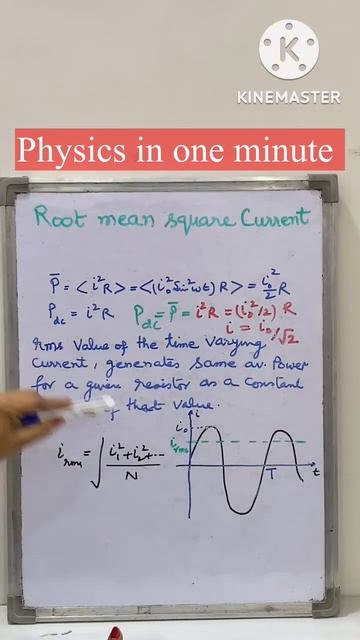 K
KINEMASTER
Physics in one minute
Root mean square Current
P̄ = < i²R > = <(i₀² Sin²ωt) R> = i₀²/2 R
P_dc = i²R   P_dc = P̄ = i²R = (i₀²/2) R
i = i₀/√2
rms Value of the time Varying
Current, generates same av. Power
for a given resistor as a Constant
that value.
i_rms = √(i₁²+i₂²+.../N)
i
i₀
i_rms
T
t